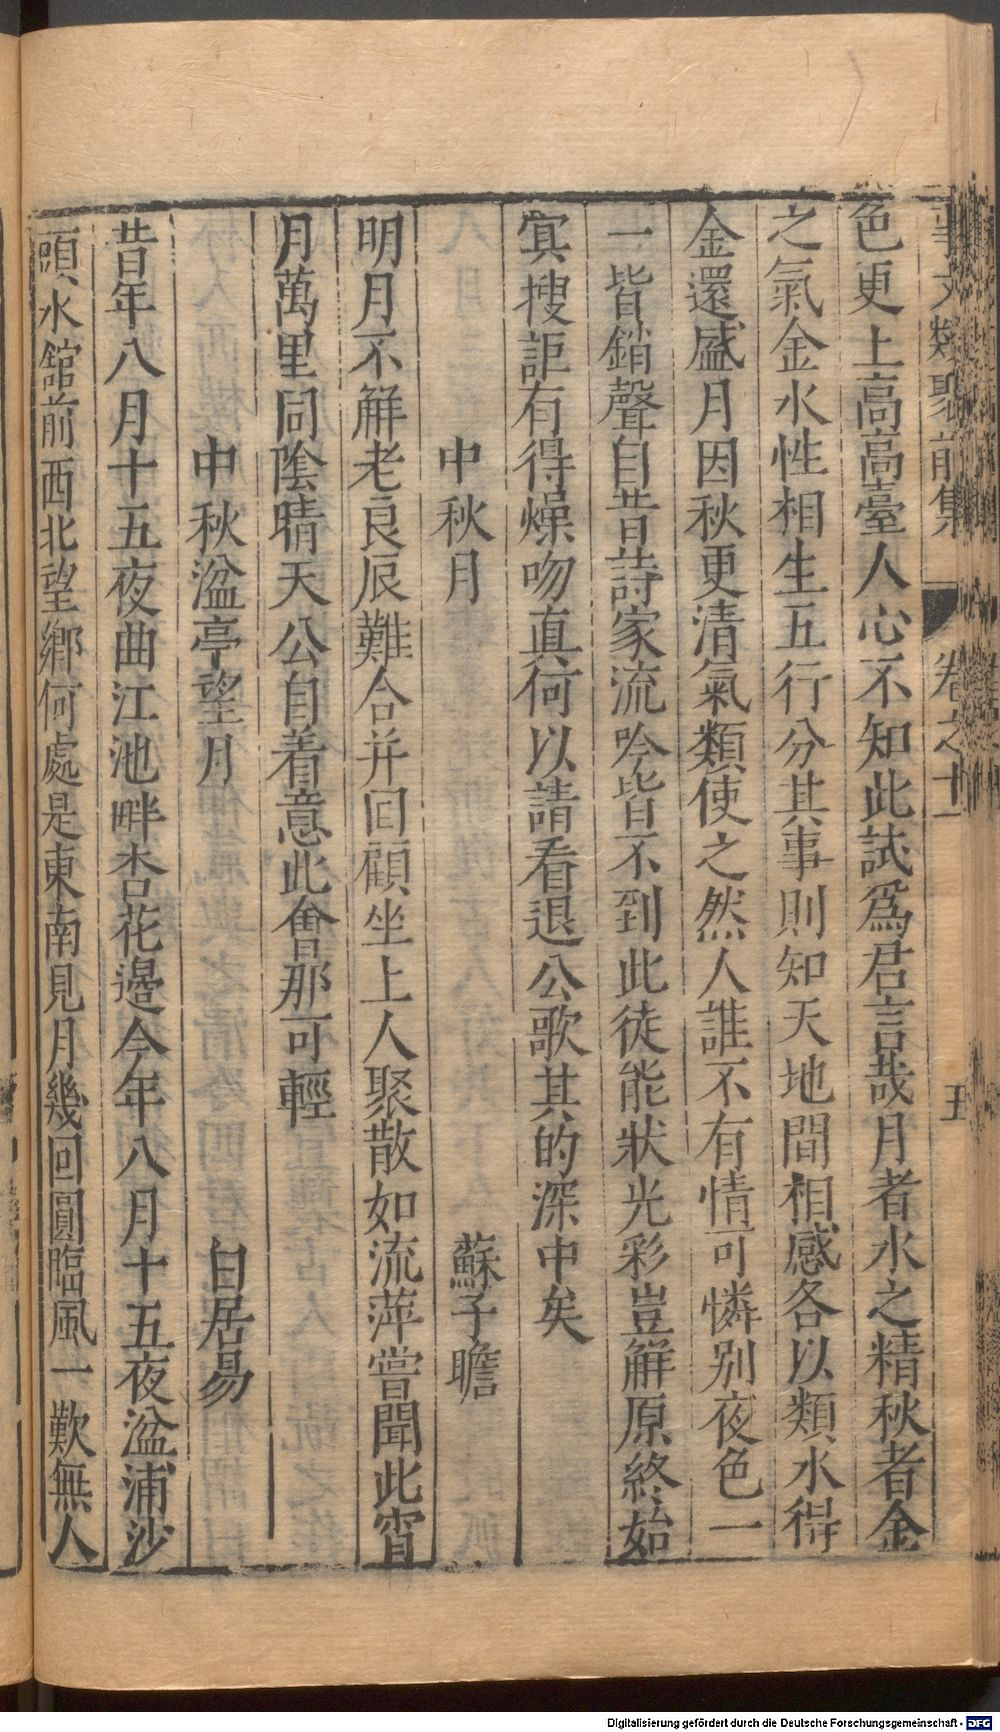 事文類聚前集 卷之十一 五
色更上高高臺人心不知此試爲君言哉月者水之精秋者金
之氣金水性相生五行分其事則知天地間相感各以類水得
金還盛月因秋更清氣類使之然人誰不有情可憐別夜色一
一皆銷聲自昔詩家流吟皆不到此徒能狀光彩豈解原終始
冥搜詎有得燥吻真何以請看退公歌其的深中矣
中秋月 蘇子瞻
明月不解老良辰難合并回顧坐上人聚散如流萍嘗聞此宵
月萬里同陰晴天公自着意此會那可輕
中秋湓亭望月 白居易
昔年八月十五夜曲江池畔杏花邊今年八月十五夜湓浦沙
頭水舘前西北望鄉何處是東南見月幾回圓臨風一歎無人
Digitalisierung gefördert durch die Deutsche Forschungsgemeinschaft - DFG